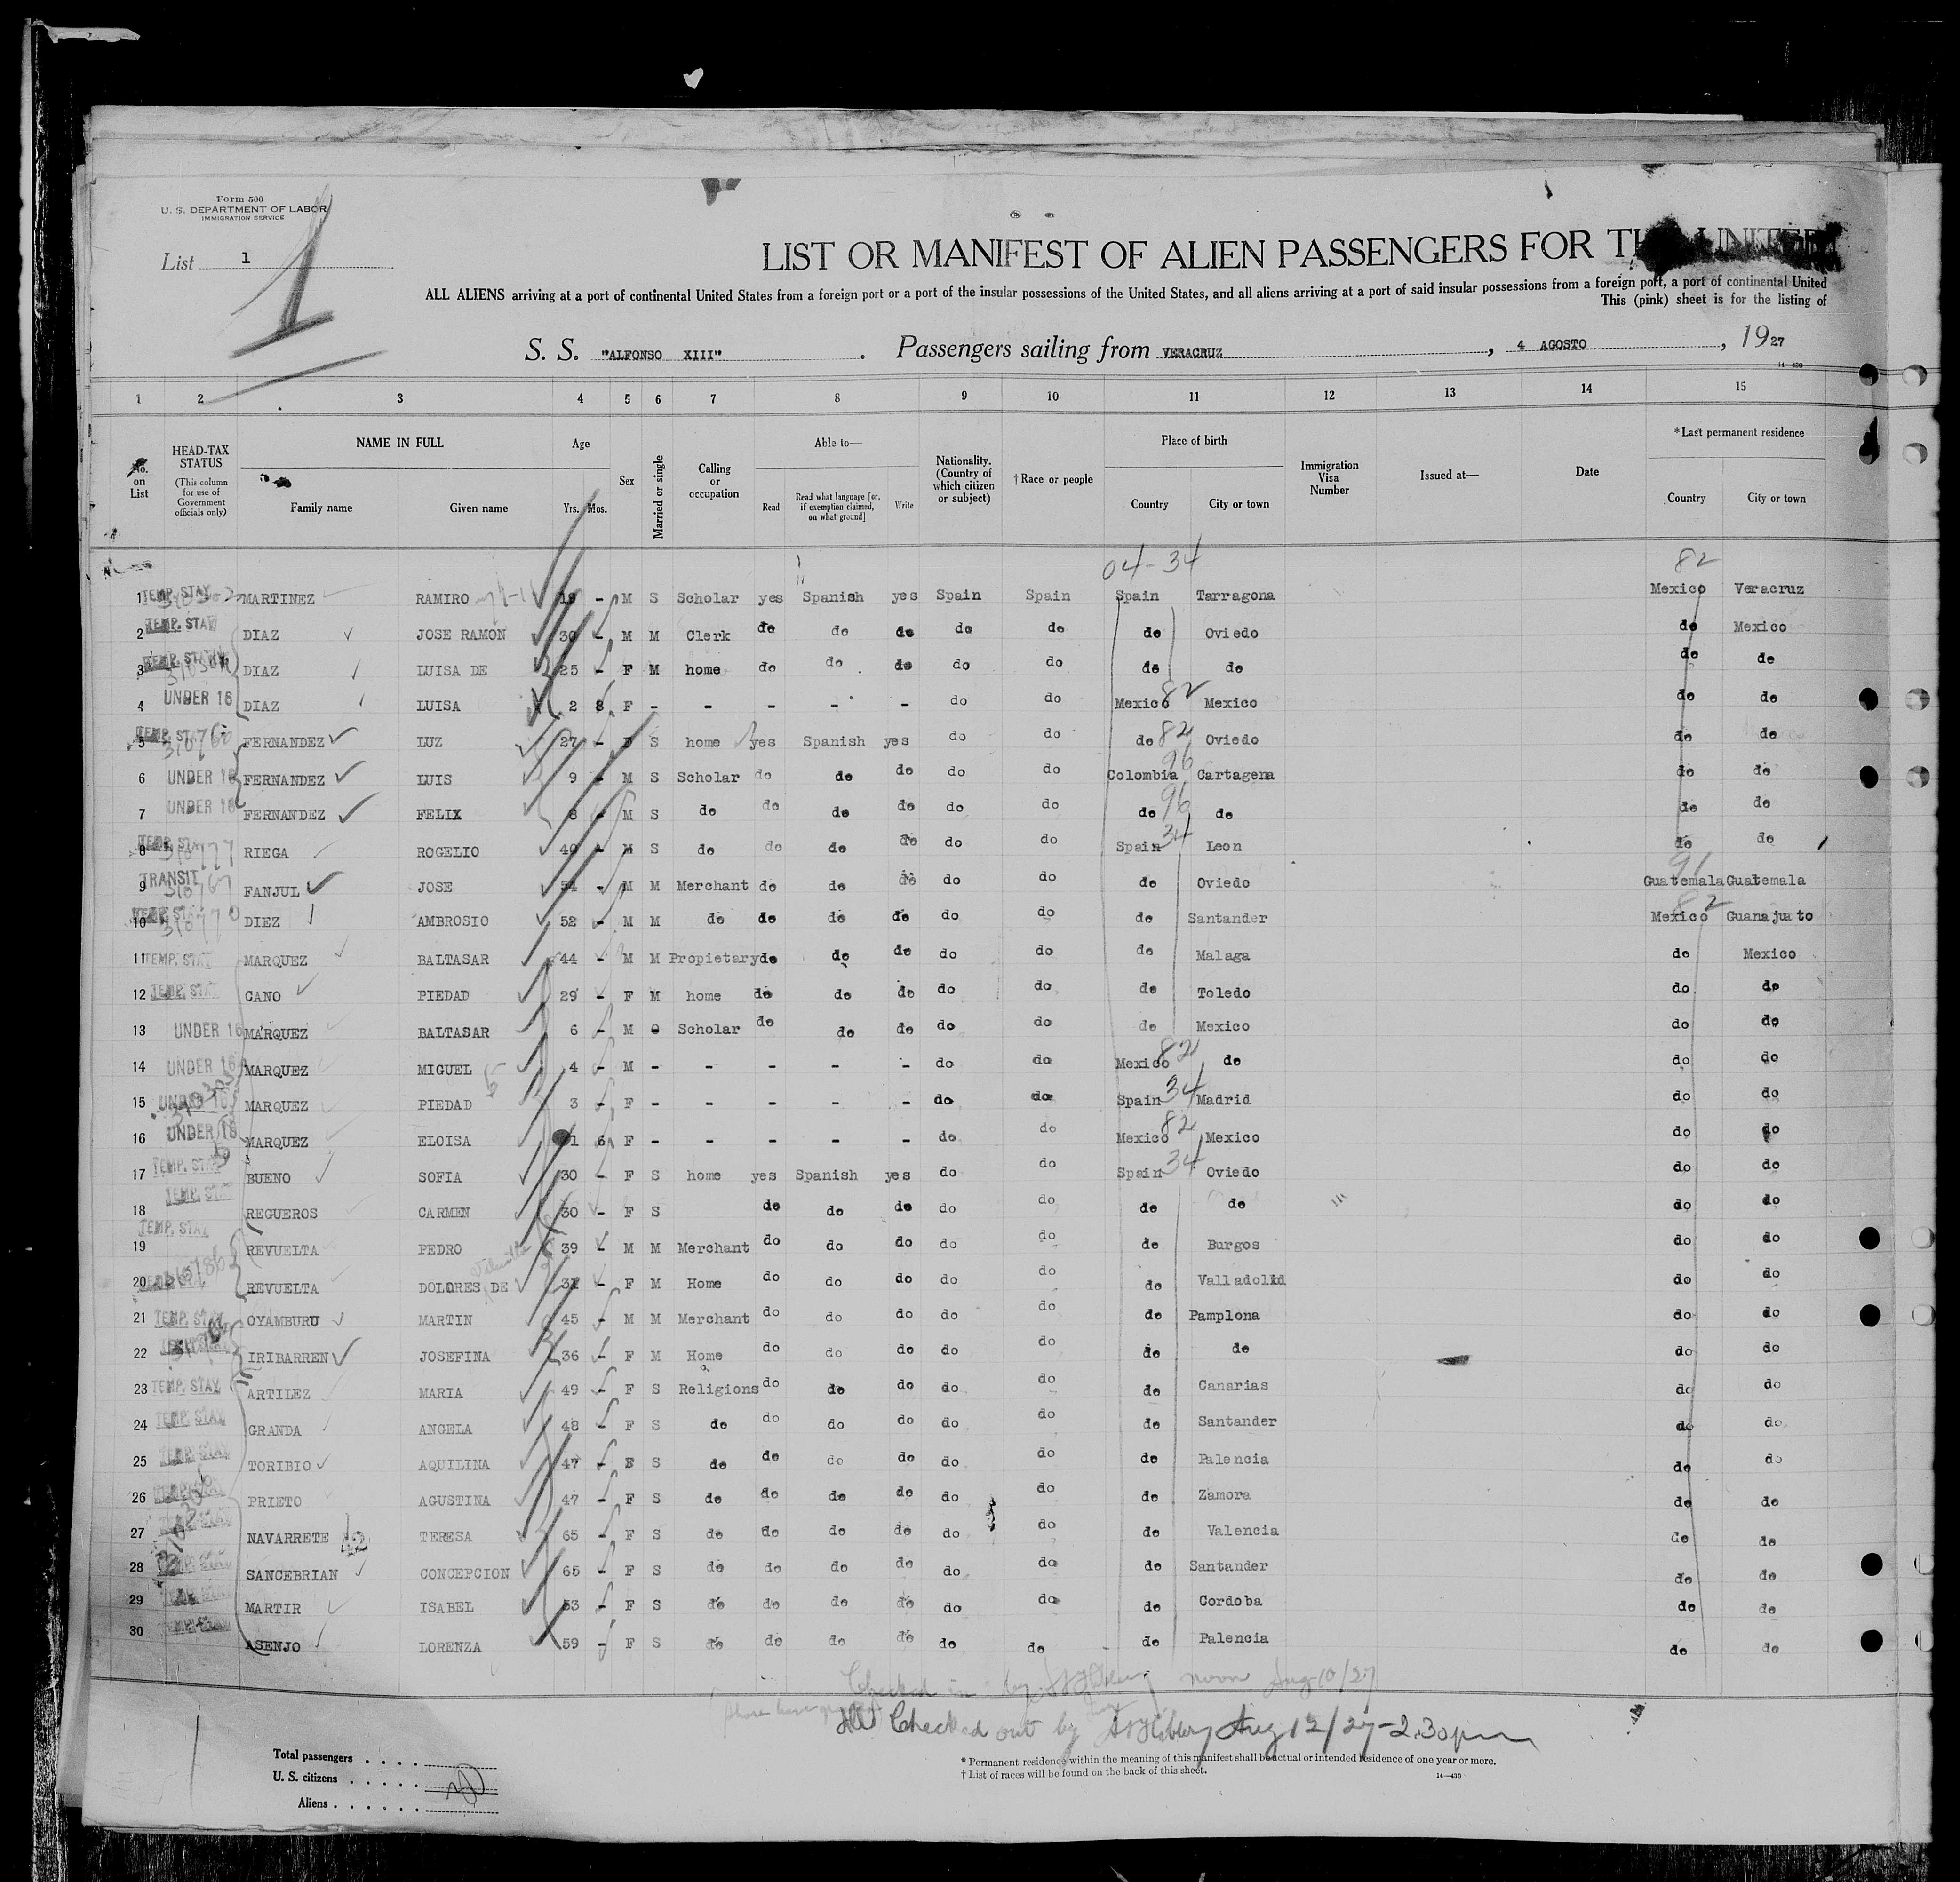 Form 500
U. S. DEPARTMENT OF LABOR
IMMIGRATION SERVICE
List 1
1
LIST OR MANIFEST OF ALIEN PASSENGERS FOR THE UNITED
ALL ALIENS arriving at a port of continental United States from a foreign port or a port of the insular possessions of the United States, and all aliens arriving at a port of said insular possessions from a foreign port, a port of continental United
This (pink) sheet is for the listing of
S. S. "ALFONSO XIII". Passengers sailing from VERACRUZ, 4 AGOSTO, 1927
1 2 3 4 5 6 7 8 9 10 11 12 13 14 15
No. on List
HEAD-TAX STATUS (This column for use of Government officials only)
NAME IN FULL Family name Given name
Age Yrs. Mos.
Sex
Married or single
Calling or occupation
Able to— Read Read what language [or, if exemption claimed, on what ground] Write
Nationality. (Country of which citizen or subject)
†Race or people
Place of birth Country City or town
Immigration Visa Number
Issued at—
Date
*Last permanent residence Country City or town
04-34 82
1 TEMP. STAY MARTINEZ RAMIRO 19 - M S Scholar yes Spanish yes Spain Spain Spain Tarragona Mexico Veracruz
2 TEMP. STAY DIAZ JOSE RAMON 30 - M M Clerk do do do do do do Oviedo do Mexico
3 TEMP. STAY DIAZ LUISA DE 25 - F M home do do do do do do do do do
4 UNDER 16 DIAZ LUISA 2 8 F - - - - - do do Mexico 82 Mexico do do
5 TEMP. STAY 310760 FERNANDEZ LUZ 27 - F S home yes Spanish yes do do do 82 Oviedo do do
6 UNDER 16 FERNANDEZ LUIS 9 - M S Scholar do do do do do Colombia 96 Cartagena do do
7 UNDER 16 FERNANDEZ FELIX 8 - M S do do do do do do do 96 do do do
8 TEMP. STAY 310777 RIEGA ROGELIO 40 - M S do do do do do do Spain 34 Leon do do
9 TRANSIT 310767 FANJUL JOSE 54 - M M Merchant do do do do do do Oviedo 91 Guatemala Guatemala
10 TEMP. STAY 310770 DIEZ AMBROSIO 52 - M M do do do do do do do Santander Mexico 82 Guanajuato
11 TEMP. STAY MARQUEZ BALTASAR 44 - M M Propietary do do do do do do Malaga do Mexico
12 TEMP. STAY CANO PIEDAD 29 - F M home do do do do do do Toledo do do
13 UNDER 16 MARQUEZ BALTASAR 6 - M S Scholar do do do do do do Mexico do do
14 UNDER 16 MARQUEZ MIGUEL 4 - M - - - - - do do Mexico 82 do do do
15 UNDER 16 MARQUEZ PIEDAD 3 - F - - - - - do do Spain 34 Madrid do do
16 UNDER 16 MARQUEZ ELOISA 1 6 F - - - - - do do Mexico 82 Mexico do do
17 TEMP. STAY BUENO SOFIA 30 - F S home yes Spanish yes do do Spain 34 Oviedo do do
18 TEMP. STAY REGUEROS CARMEN 30 - F S do do do do do do do do do
19 TEMP. STAY REVUELTA PEDRO 39 - M M Merchant do do do do do do Burgos do do
20 REVUELTA DOLORES DE 31 - F M Home do do do do do do Valladolid do do
21 TEMP. STAY OYAMBURU MARTIN 45 - M M Merchant do do do do do do Pamplona do do
22 IRIBARREN JOSEFINA 36 - F M Home do do do do do do do do do
23 TEMP. STAY ARTILEZ MARIA 49 - F S Religions do do do do do do Canarias do do
24 TEMP. STAY GRANDA ANGELA 48 - F S do do do do do do do Santander do do
25 TEMP. STAY TORIBIO AQUILINA 47 - F S do do do do do do do Palencia do do
26 TEMP. STAY PRIETO AGUSTINA 47 - F S do do do do do do do Zamora do do
27 TEMP. STAY NAVARRETE TERESA 65 - F S do do do do do do do Valencia do do
28 TEMP. STAY SANCEBRIAN CONCEPCION 65 - F S do do do do do do do Santander do do
29 TEMP. STAY MARTIR ISABEL 53 - F S do do do do do do do Cordoba do do
30 TEMP. STAY ASENJO LORENZA 59 - F S do do do do do do do Palencia do do
Checked in by noon Aug 10/27
All Checked out by Aug 12/27-2.30pm
Total passengers
U. S. citizens
Aliens
* Permanent residence within the meaning of this manifest shall be actual or intended residence of one year or more.
† List of races will be found on the back of this sheet.